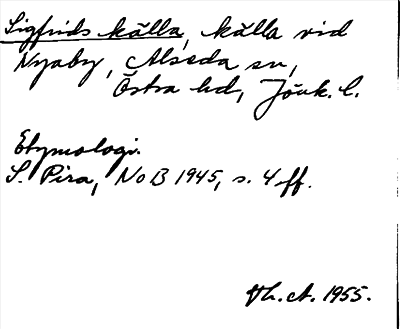 Sigfrids källa, källa vid
Nyaby, Alseda sn,
Östra hd, Jönk. l.
Etymologi.
S. Pira, NoB 1945, s. 4 ff.
Vh. at. 1955.